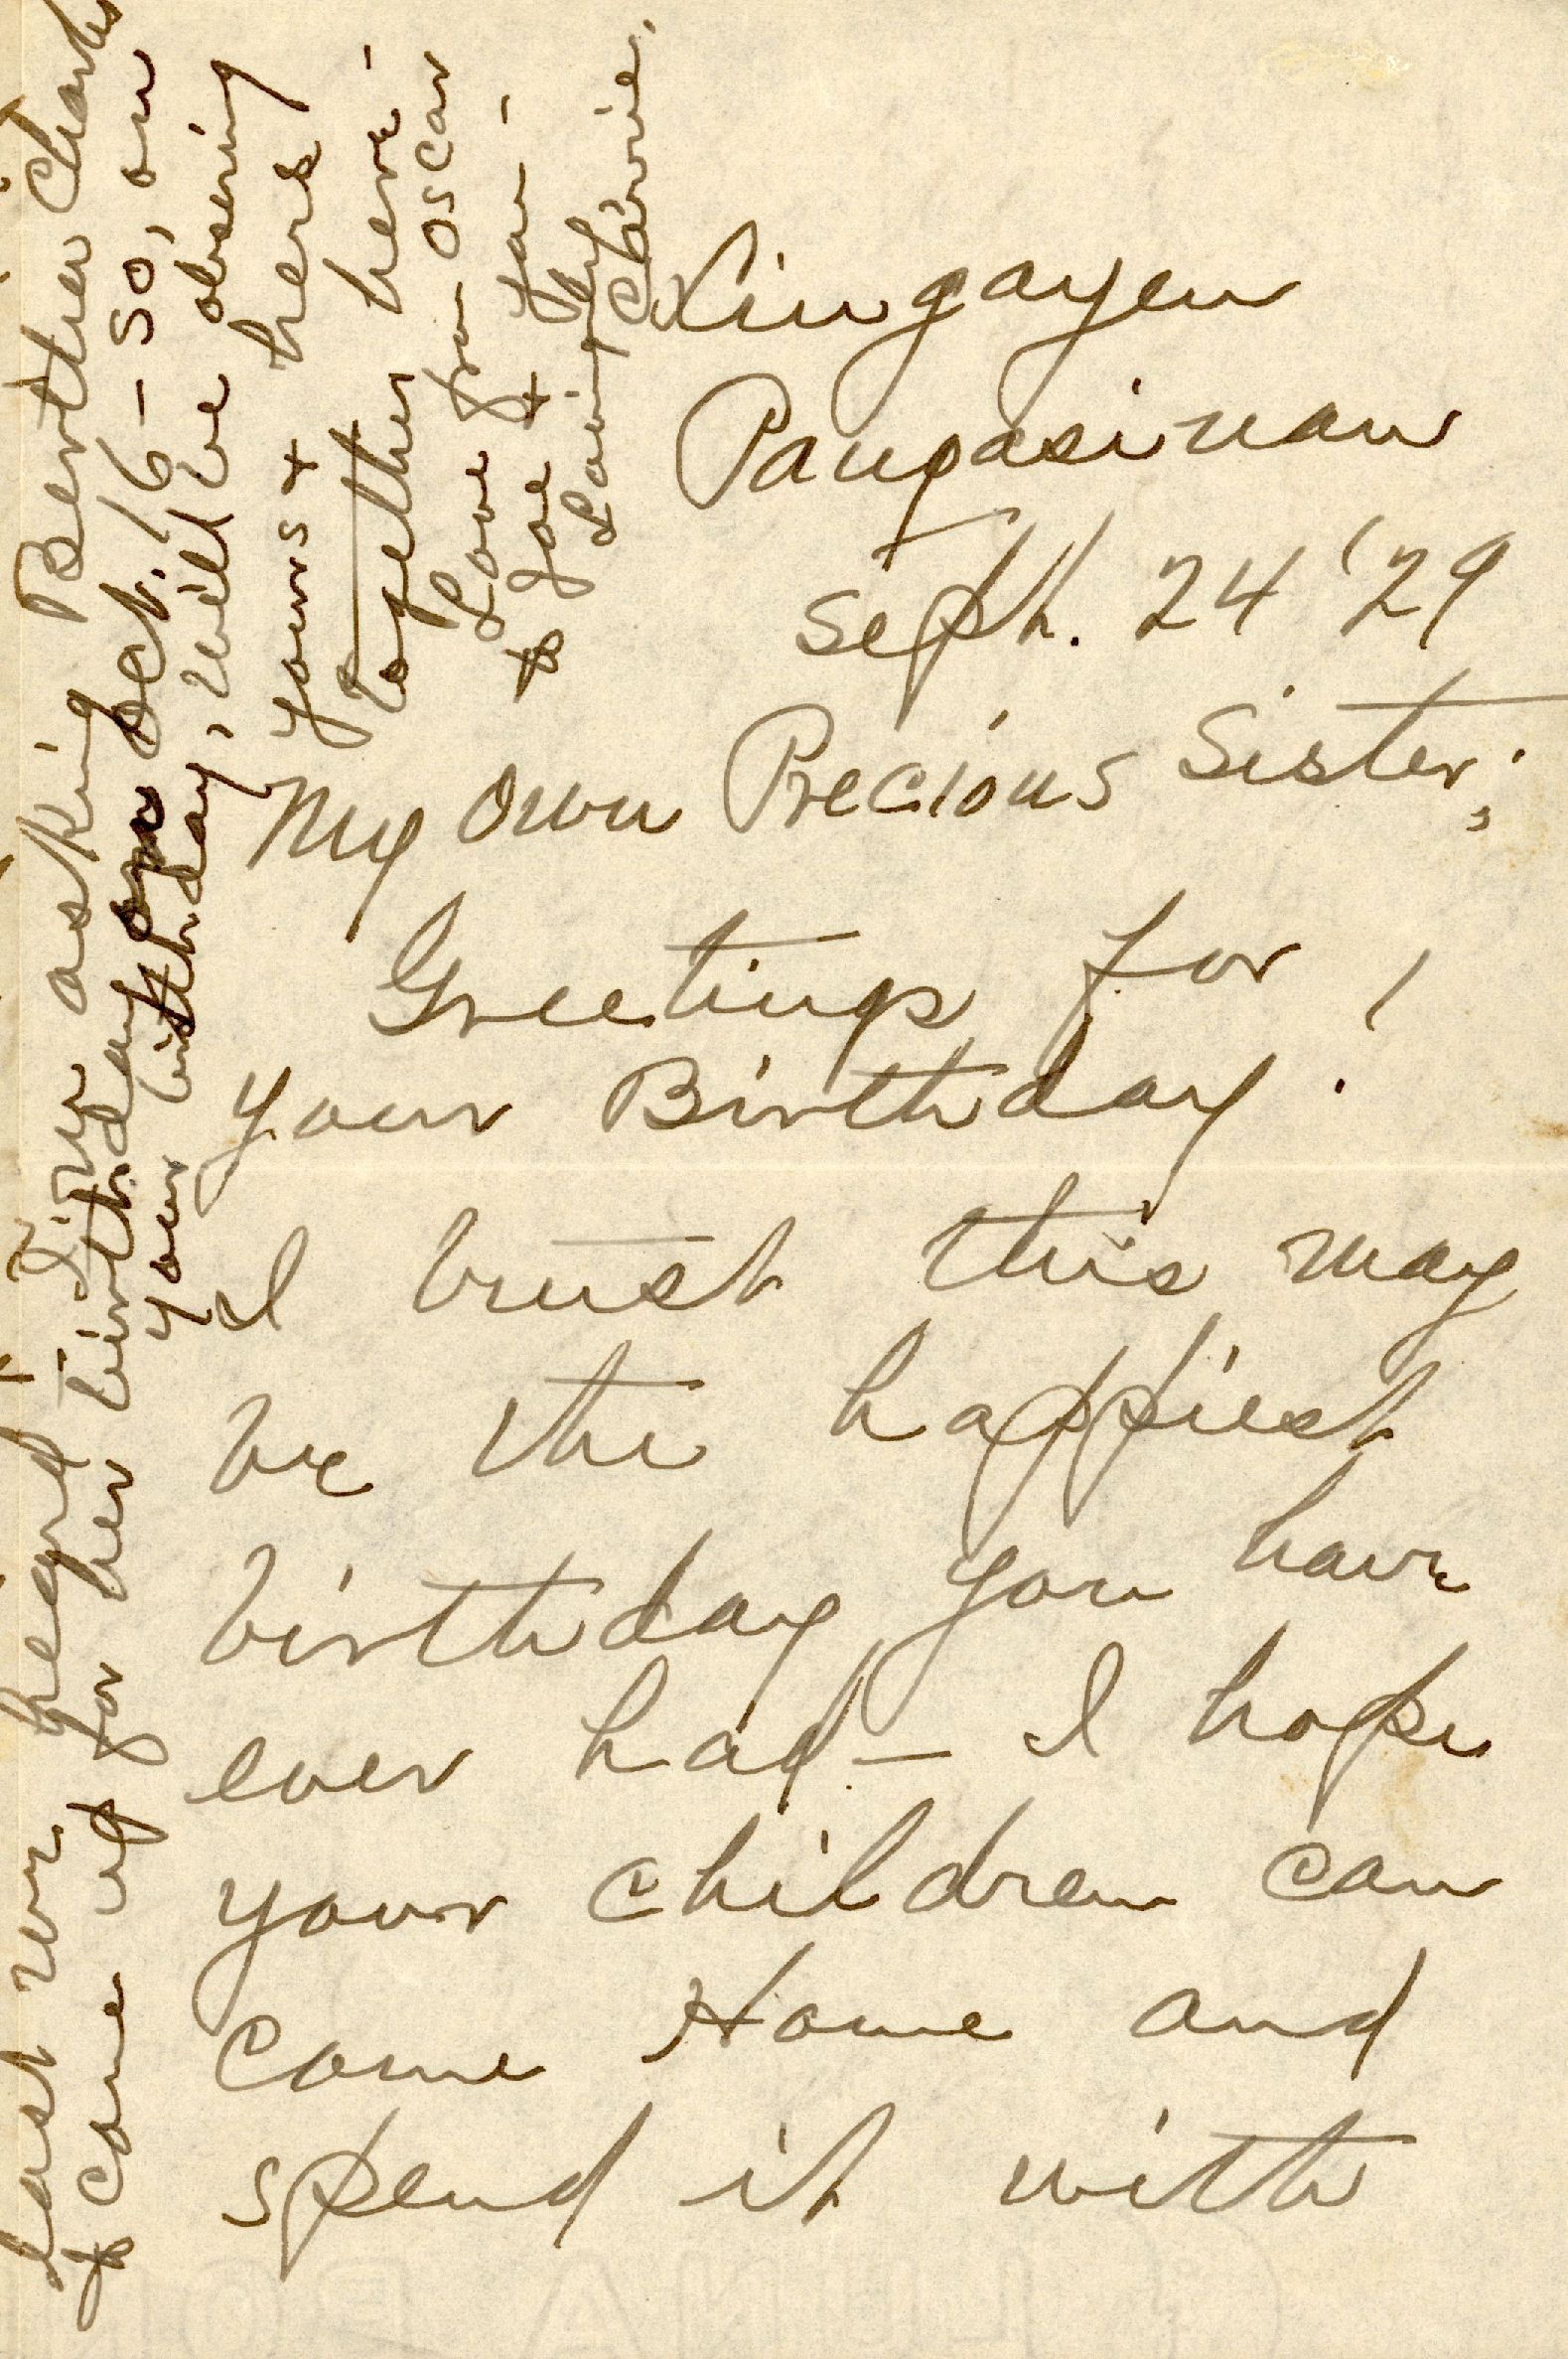 Lingayen
Pangasinan
Sept. 24 '29
My Own Precious Sister;
Greetings for
your Birthday!
I trust this may
be the happiest
birthday you have
ever had — I hope
your children can
come Home and
spend it with
last we heard I'm asking Bertha Charles
& come up for her birthday on Oct. 16 – so, on
your birthday, will be observing
yours & hers
together here –
Love from Oscar
& Joe & you –
Lovingly